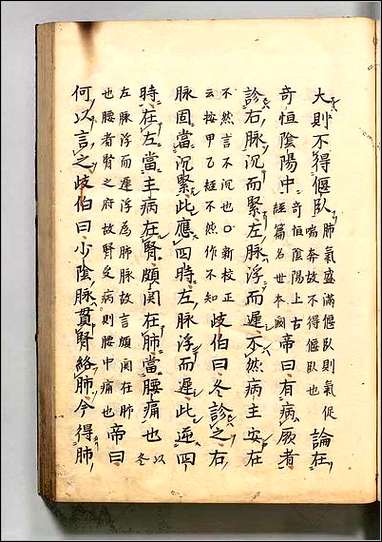 大則不得偃臥肺氣盛滿偃臥則氣促喘奔故不得偃臥也論在
奇恒陰陽中奇恒陰陽上古經篇名世本闕帝曰有病厥者
診右脉沉而緊左脉浮而遲不然病主安在
不然言不沉也○新校正云按甲乙經不然作不知岐伯曰冬診之右
脉固當沉緊此應四時左脉浮而遲此逆四
時在左當主病在腎頗関在肺當腰痛也以冬
左脉浮而遲浮為肺脉故言頗関在肺也腰者腎之府故腎受病則腰中痛也帝曰
何以言之岐伯曰少陰脉貫腎絡肺今得肺